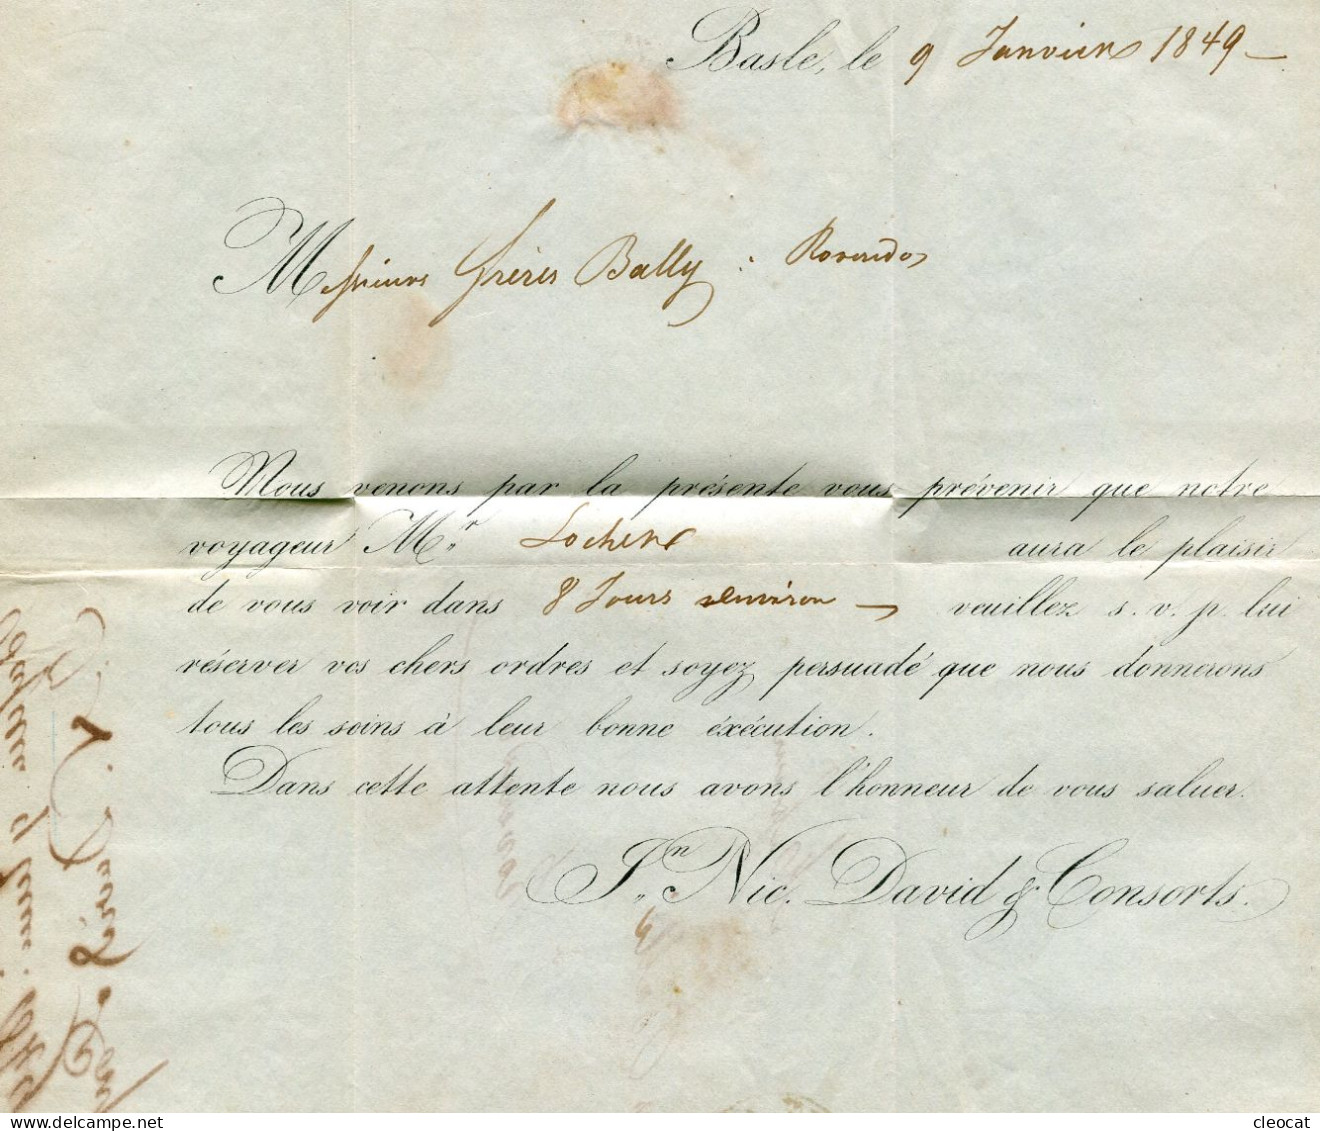 Basle, le 9 Janvier 1849
Messieurs frères Bally :
Nous venons par la présente vous prévenir que notre
voyageur Mr Locher aura le plaisir
de vous voir dans 8 Jours environ — veuillez s. v. p. lui
réserver vos chers ordres et soyez persuadé que nous donnerons
tous les soins à leur bonne éxécution.
Dans cette attente nous avons l'honneur de vous saluer.
Jn Nic. David & Consorts.
cleocat